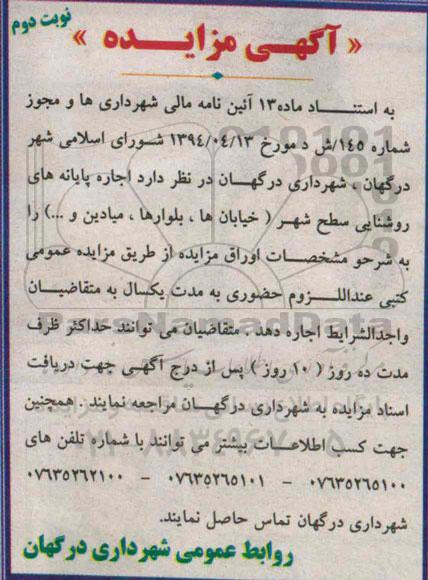 نوبت دوم
« آگهی مزایده »
به استناد ماده۱۳ آئین نامه مالی شهرداری ها و مجوز
شماره ۱۴۵/ش د مورخ ۱۳۹۴/۰۴/۱۳ شورای اسلامی شهر
درگهان ، شهرداری درگهان در نظر دارد اجاره پایانه های
روشنایی سطح شهر ( خیابان ها ، بلوارها ، میادین و ...) را
به شرحو مشخصات اوراق مزایده از طریق مزایده عمومی
کتبی عنداللزوم حضوری به مدت یکسال به متقاضیان
واجدالشرایط اجاره دهد . متقاضیان می توانند حداکثر ظرف
مدت ده روز ( ۱۰ روز ) پس از درج آگهی جهت دریافت
اسناد مزایده به شهرداری درگهان مراجعه نمایند . همچنین
جهت کسب اطلاعات بیشتر می توانند با شماره تلفن های
۰۷۶۳۵۲۶۵۱۰۰ – ۰۷۶۳۵۲۶۵۱۰۱ – ۰۷۶۳۵۲۶۲۱۰۰
شهرداری درگهان تماس حاصل نمایند.
روابط عمومی شهرداری درگهان
ParsNamadData